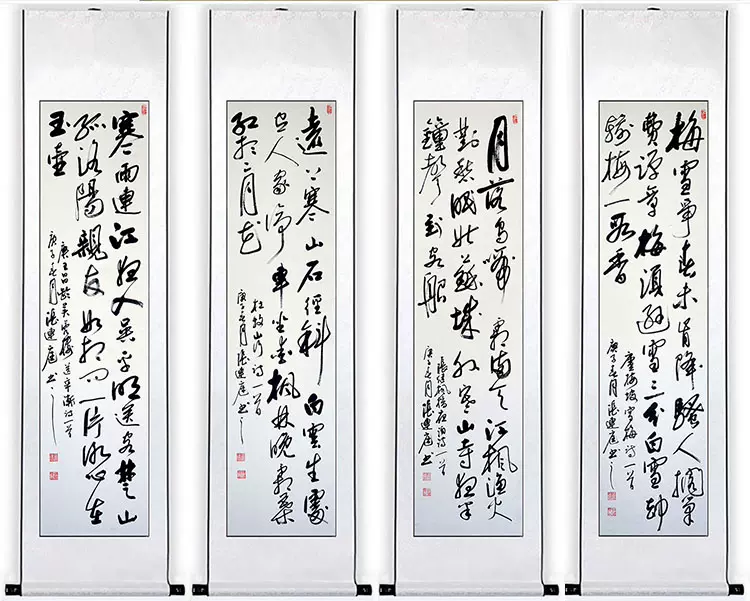 梅雪争春未肯降騷人擱筆
費評章梅須遜雪三分白雪卻
輸梅一段香
盧梅坡雪梅诗一首
庚子春月張 庭书之
月落烏啼霜滿天江枫漁火
對愁眠姑蘇城外寒山寺夜半
鐘聲到客船
張継枫橋夜泊诗一首
庚子春月張 庭书
遠上寒山石徑斜白雲生處
有人家停車坐愛枫林晚霜葉
红於二月花
杜牧山行诗一首
庚子春月張 庭书之
寒雨連江夜入吳平明送客楚山
孤洛陽親友如相问一片冰心在
玉壺
唐王昌齡芙蓉樓送辛漸诗一首
庚子春月張 庭书之